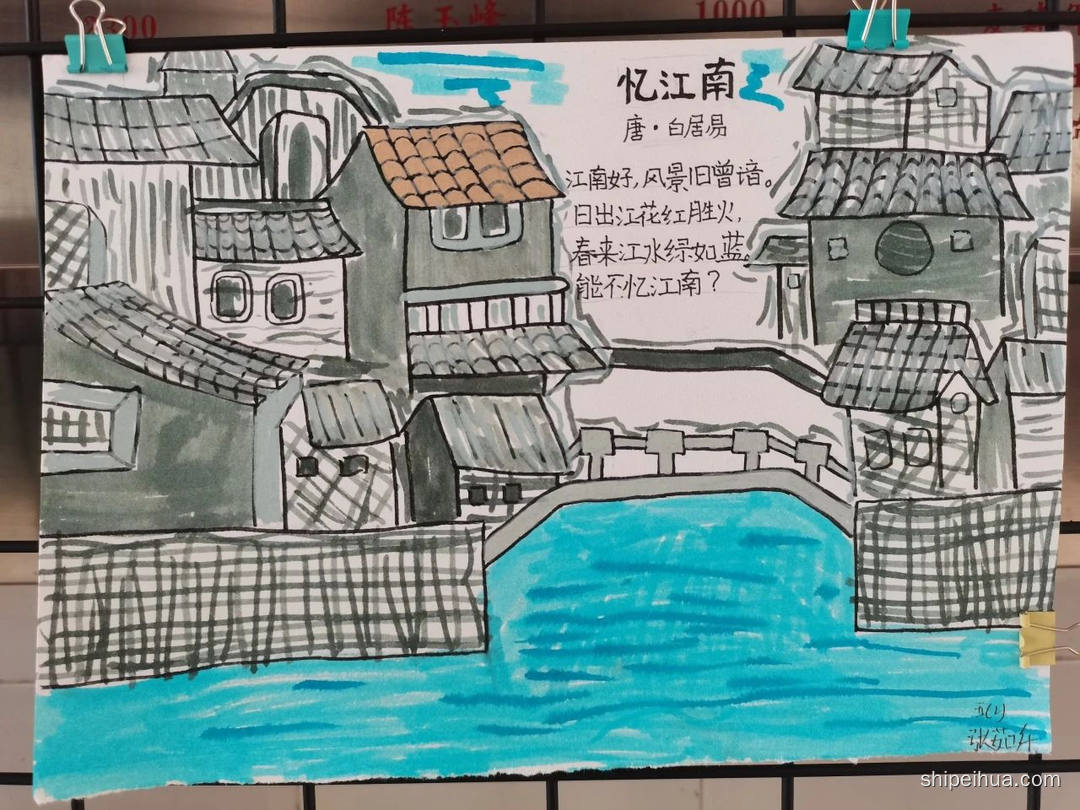 陈玉峰
1000
忆江南
唐·白居易
江南好，风景旧曾谙。
日出江花红胜火，
春来江水绿如蓝。
能不忆江南？
五(1)
shipeihua.com